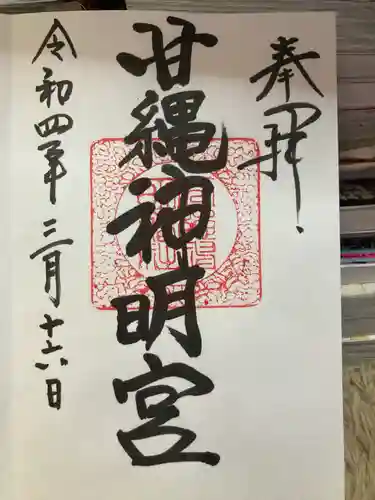 奉拝
甘縄神明宮
令和四年 三月十六日